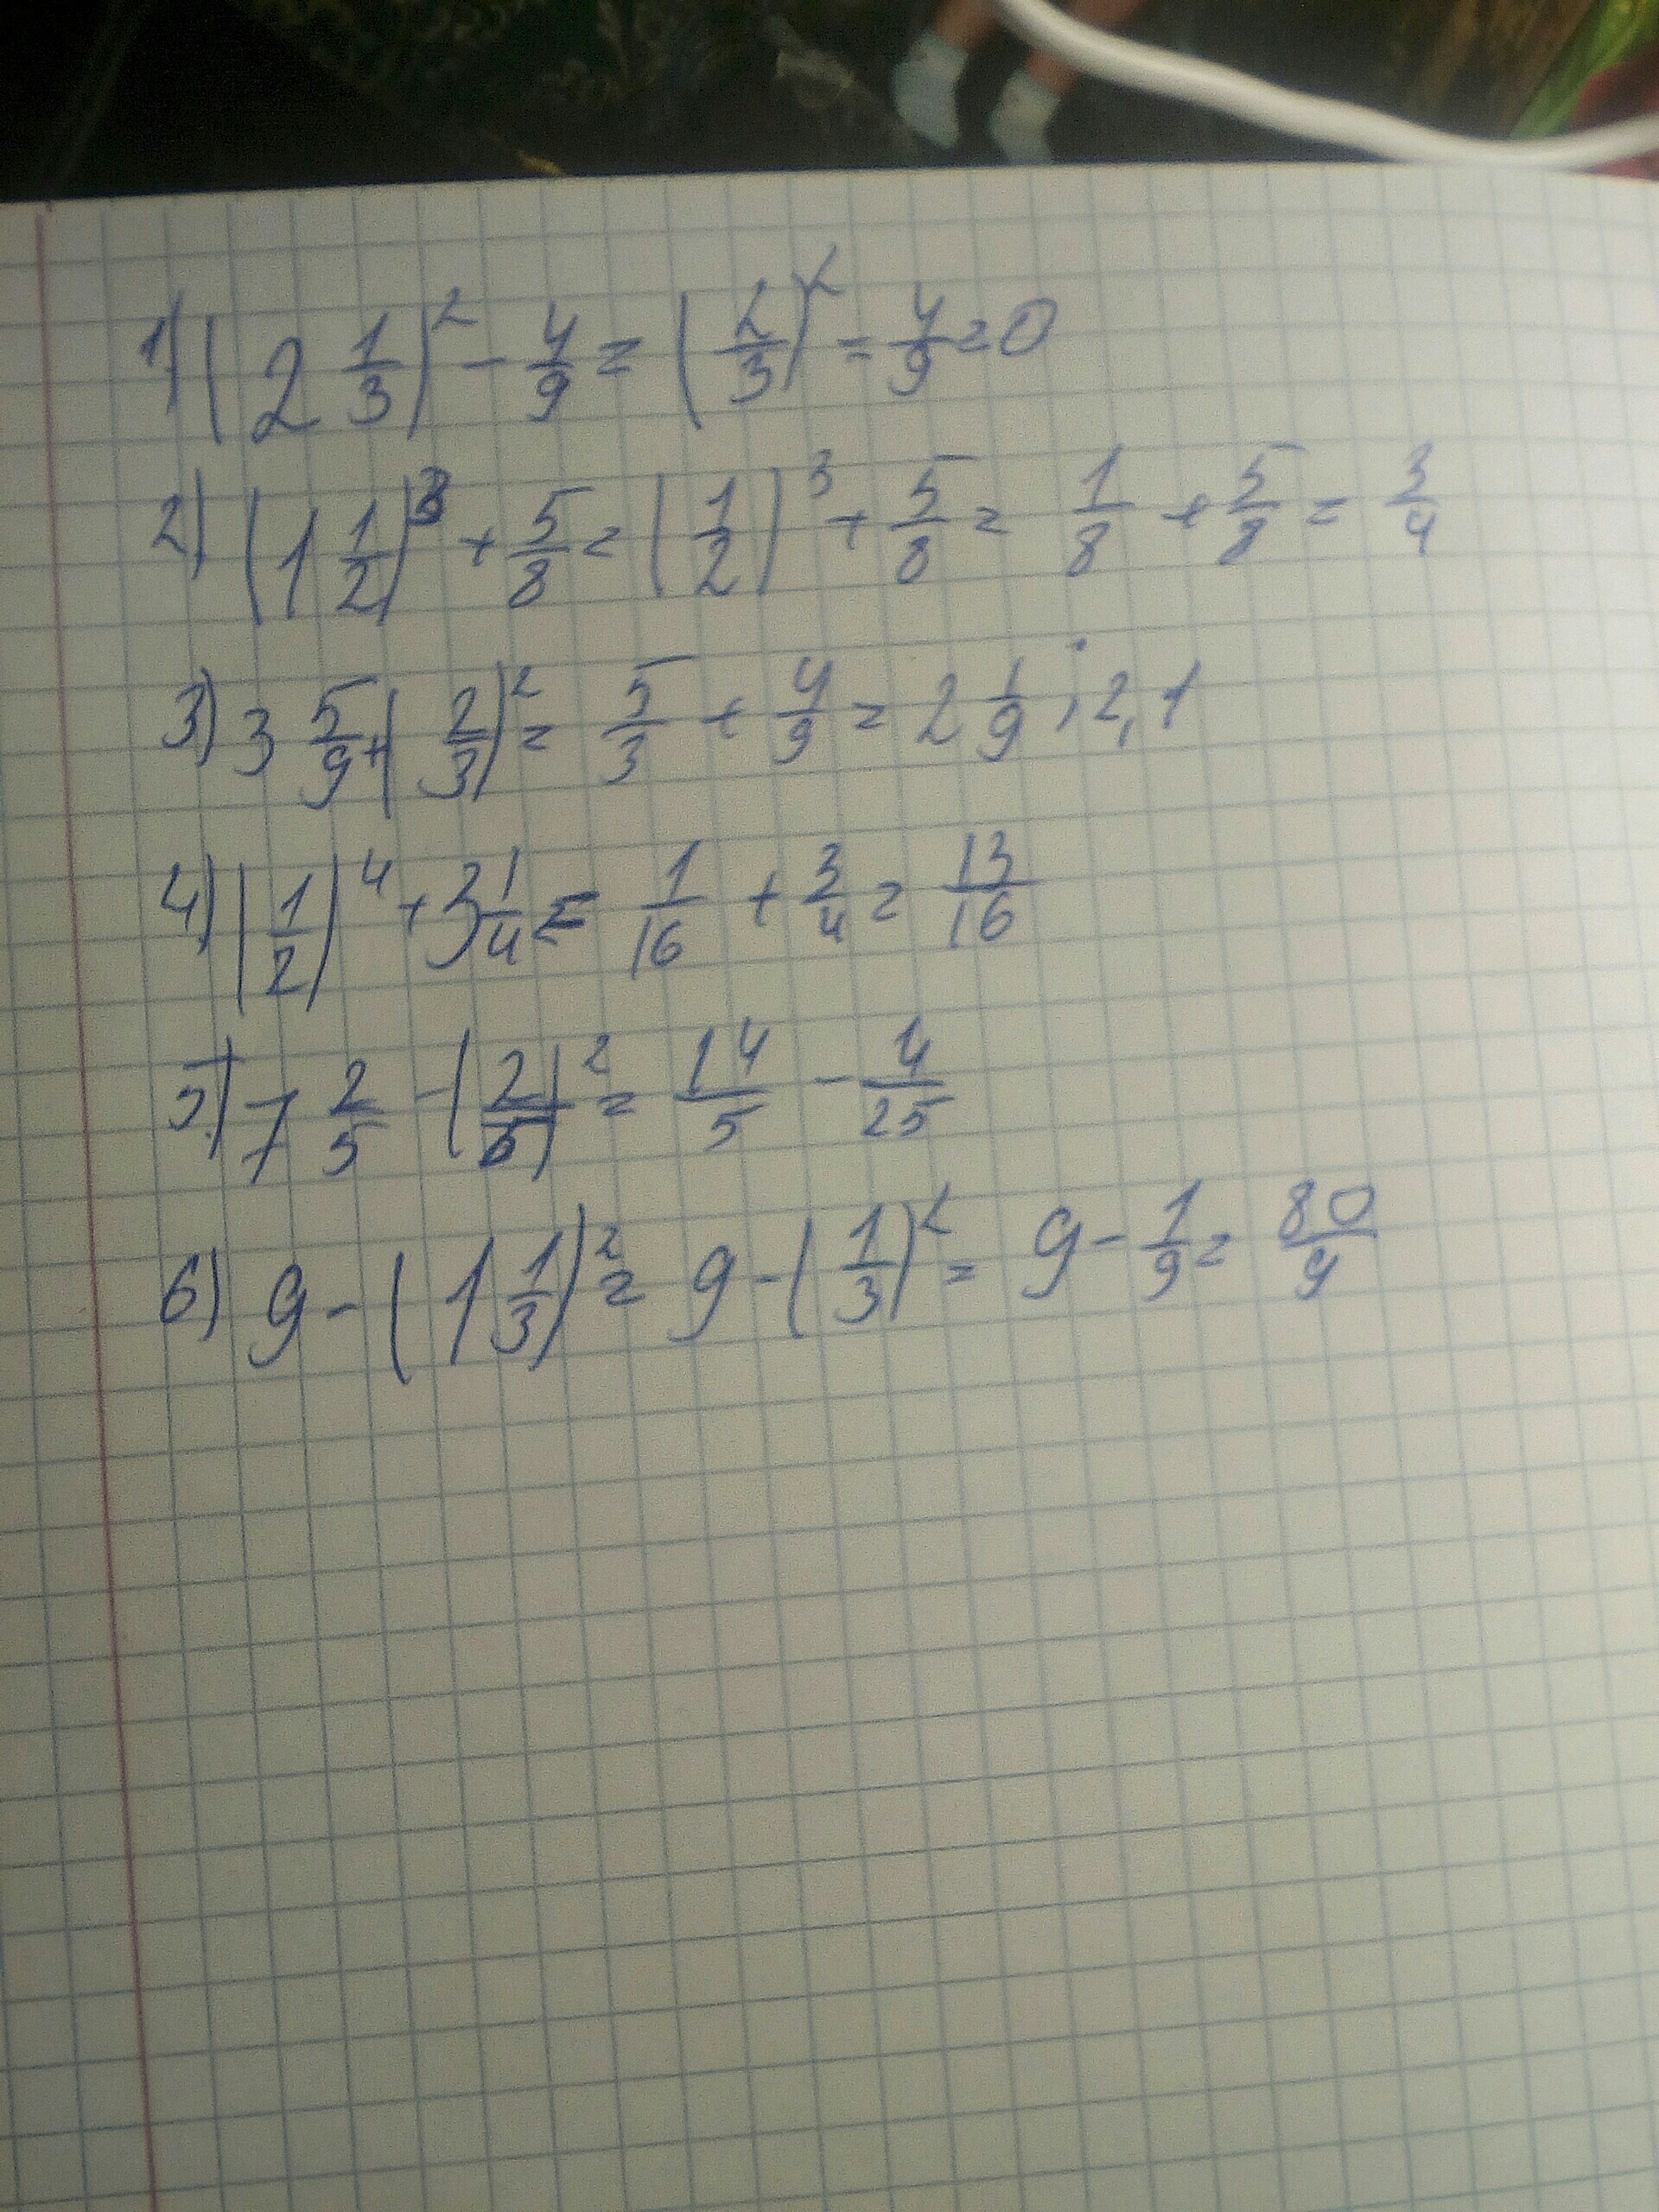 1) (2 1/3)² - 4/9 = (2/3)² - 4/9 = 0
2) (1 1/2)³ + 5/8 = (1/2)³ + 5/8 = 1/8 + 5/8 = 3/4
3) 3 5/9 + (2/3)² = 5/3 + 4/9 = 2 1/9 ; 2,1
4) (1/2)⁴ + 3 1/4 = 1/16 + 3/4 = 13/16
5) 7 2/5 - (2/5)² = 14/5 - 4/25
6) 9 - (1 1/3)² = 9 - (1/3)² = 9 - 1/9 = 80/9